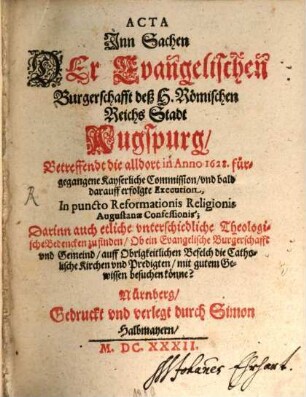 ACTA
Inn Sachen
DEr Evangelischen
Burgerschafft deß H. Römischen
Reichs Stadt
Augspurg/
Betreffende die alldort in Anno 1628. für-
gegangene Kayserliche Commission/ und bald
darauff erfolgte Execution,
In puncto Reformationis Religionis
Augustanæ Confessionis;
Darinn auch etliche unterschiedliche Theologi-
sche Bedencken zu finden/ Ob ein Evangelische Burgerschafft
und Gemeind/ auff Obrigkeitlichen Befelch die Catho-
lische Kirchen und Predigten/ mit gutem Ge-
wissen besuchen könne?
Nürnberg/
Gedruckt und verlegt durch Simon
Halbmayern/
M. DC. XXXII.
Johannes Ehrhart.